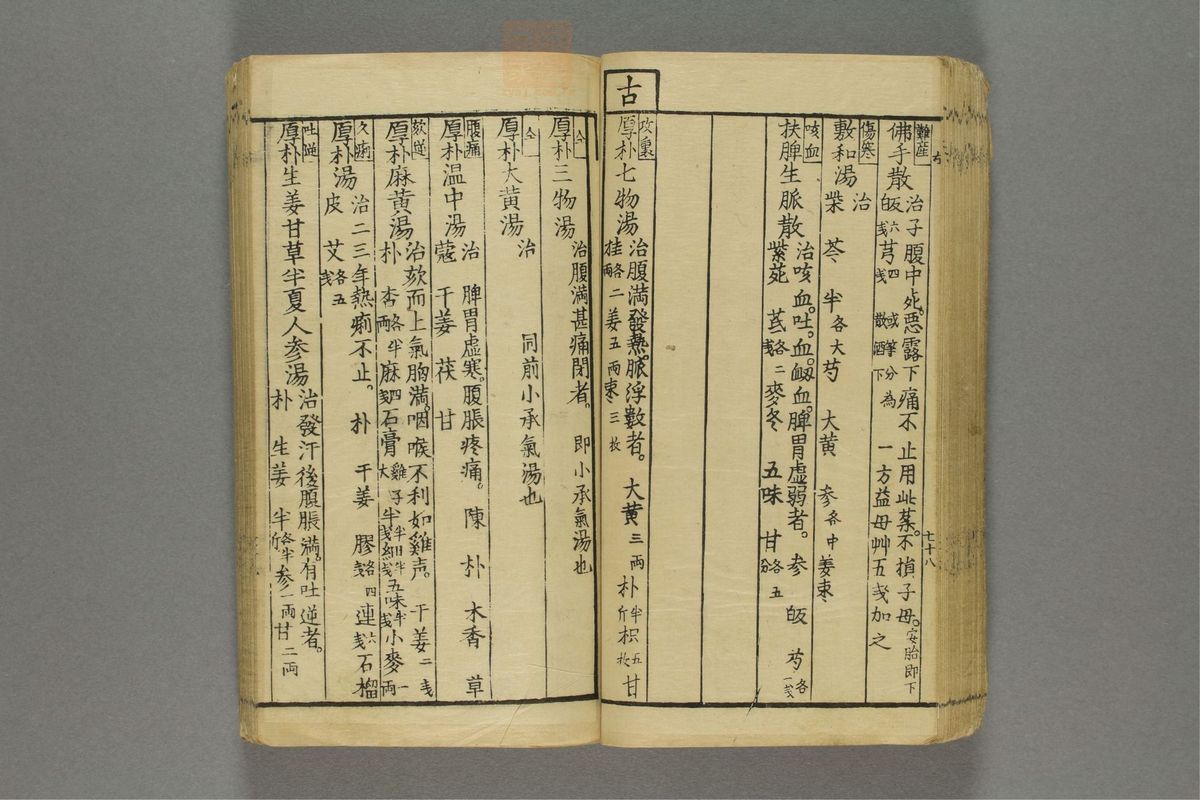 難産
佛手散
治子腹中死。惡露下痛不止用此藥。不損子母。安胎即下
皈六戔芎四戔 或等分為散酒下 一方益母艸五戔加之
七十八
傷寒
敷和湯
治
柴 苓 半各大芍 大黄 參各中姜棗
咳血
扶脾生脈散
治咳血。吐血。衂血。脾胃虛弱者。參 皈 芍各一戔
紫菀 芪各二戔麥冬 五味 甘各五分
古
攻裏
厚朴七物湯
治腹滿發熱。脈浮數者。大黄三両朴半斤枳五枚甘
桂各二両姜五両棗三枚
仝
厚朴三物湯
治腹滿甚痛閉者。即小承氣湯也
仝
厚朴大黄湯
治 同前小承氣湯也
腹痛
厚朴温中湯
治脾胃虛寒。腹脹疼痛。陳 朴 木香 草
蔻 干姜 茯 甘
欬逆
厚朴麻黄湯
治欬而上氣胸滿。咽喉不利如雞声。干姜二戔
朴 杏各半両麻四戔石膏雞子大半半戔細半戔五味半戔小麥一両
久痢
厚朴湯
治二三年熱痢不止。朴 干姜 膠各四戔連六戔石榴
皮 艾各五戔
吐逆
厚朴生姜甘草半夏人参湯
治發汗後腹脹滿。有吐逆者。
朴 生姜 半各半斤参一両甘二両